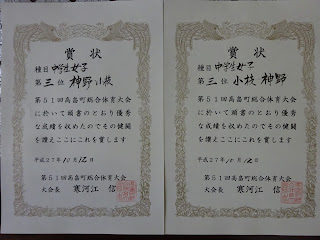 賞状
種目 中学生女子
第三位 神野 小枝
第51回高畠町総合体育大会
に於いて頭書のとおり優秀
な成績を収めたのでその健闘
を讃えここにこれを賞します
平成27年10月12日
第51回高畠町総合体育大会
大会長 寒河江 信
賞状
種目 中学生女子
第三位 小枝 神野
第51回高畠町総合体育大会
に於いて頭書のとおり優秀
な成績を収めたのでその健闘
を讃えここにこれを賞します
平成27年10月12日
第51回高畠町総合体育大会
大会長 寒河江 信